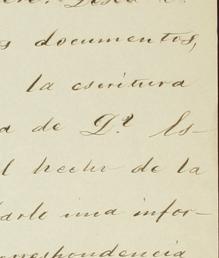 s documentos,
la escritura
a de D.ª Es-
l hecho de la
darle una infor-
orrespondencia